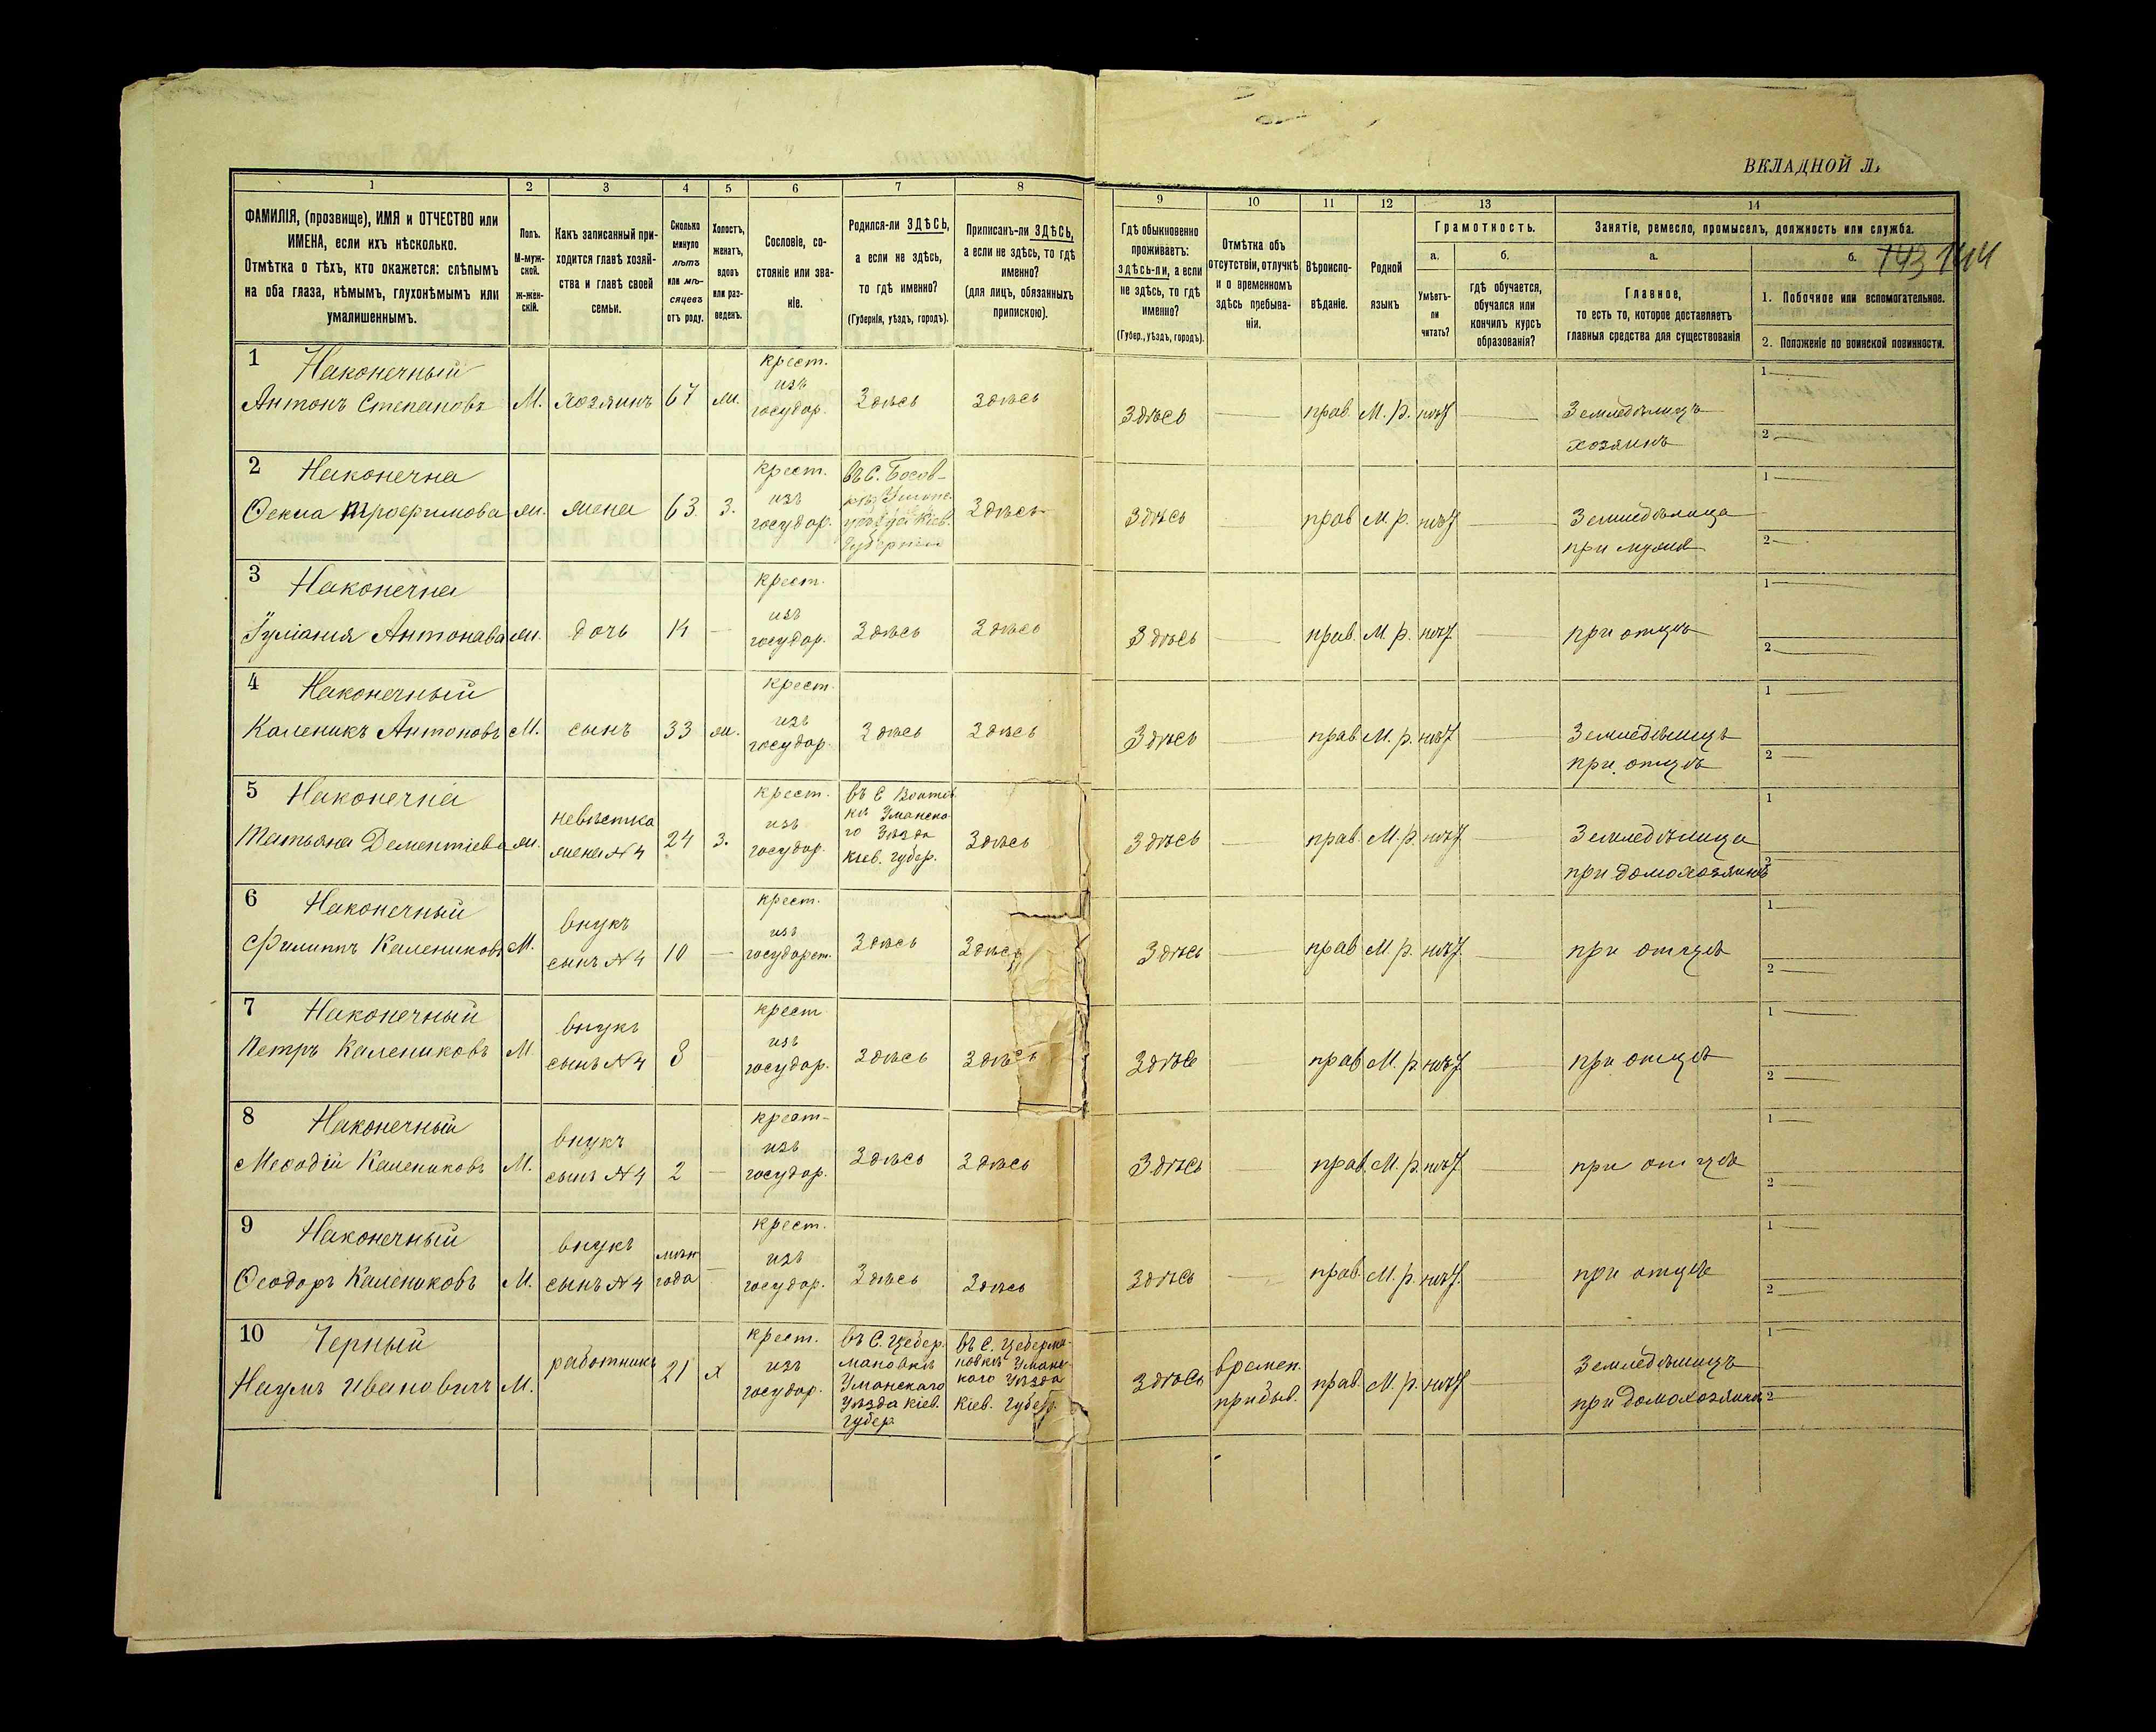 ВКЛАДНОЙ
143 144
1 2 3 4 5 6 7 8 9 10 11 12 13 14
ФАМИЛІЯ, (прозвище), ИМЯ и ОТЧЕСТВО или
ИМЕНА, если ихъ нѣсколько.
Отмѣтка о тѣхъ, кто окажется: слѣпымъ
на оба глаза, нѣмымъ, глухонѣмымъ или
умалишеннымъ.
Полъ.
М-муж-
ской.
ж-жен-
скій.
Какъ записанный при-
ходится главѣ хозяй-
ства и главѣ своей
семьи.
Сколько
минуло
лѣтъ
или мѣ-
сяцевъ
отъ роду.
Холостъ,
женатъ,
вдовъ
или раз-
веденъ.
Сословіе, со-
стояніе или зва-
ніе.
Родился-ли ЗДѢСЬ,
а если не здѣсь,
то гдѣ именно?
(Губернія, уѣздъ, городъ).
Приписанъ-ли ЗДѢСЬ,
а если не здѣсь, то гдѣ
именно?
(для лицъ, обязанныхъ
припискою).
Гдѣ обыкновенно
проживаетъ:
здѣсь-ли, а если
не здѣсь, то гдѣ
именно?
(Губер., уѣздъ, городъ).
Отмѣтка объ
отсутствіи, отлучкѣ
и о временномъ
здѣсь пребыва-
ніи.
Вѣроиспо-
вѣданіе.
Родной
языкъ
Грамотность.
а.
Умѣетъ-
ли
читать?
б.
гдѣ обучается,
обучался или
кончилъ курсъ
образованія?
Занятіе, ремесло, промыселъ, должность или служба.
а.
Главное,
то есть то, которое доставляетъ
главныя средства для существованія
б.
1. Побочное или вспомогательное.
2. Положеніе по воинской повинности.
1 Наконечный
Антонъ Степановъ М. хозяинъ 67 ж. крест. изъ государ. Здѣсь Здѣсь Здѣсь — прав. М. р. нѣт — Земледѣлецъ
хозяинъ
1 —
2 —
2 Наконечна
Ѳекла Трофимова ж. жена 63 з. крест. изъ государ. въ С. Босов- Здѣсь Здѣсь — прав. М. р. нѣт — Земледѣлица
уѣзда Кіев.
губерніи
при мужѣ
1 —
2 —
3 Наконечна
Іуліания Антонава ж. дочь 14 — крест. изъ государ. Здѣсь Здѣсь Здѣсь — прав. М. р. нѣт — при отцѣ
1 —
2 —
4 Наконечный
Каленикъ Антоновъ М. сынъ 33 ж. крест. изъ государ. Здѣсь Здѣсь Здѣсь — прав. М. р. нѣт — Земледѣлецъ
при отцѣ
1 —
2 —
5 Наконечна
Татьяна Дементіева ж. невѣстка
жена №4 24 з. крест. изъ государ. въ С
Уманска-
го Уѣзда
Кіев. губер. Здѣсь Здѣсь — прав. М. р. нѣт — Земледѣлица
при домохозяинѣ
1
2
6 Наконечный
Филиппъ Калениковъ М. внукъ
сынъ №4 10 — крест. изъ государст. Здѣсь Здѣсь Здѣсь — прав. М. р. нѣт — при отцѣ
1 —
2 —
7 Наконечный
Петръ Калениковъ М. внукъ
сынъ №4 8 — крест изъ государ. Здѣсь Здѣсь Здѣсь — прав. М. р. нѣт — при отцѣ
1 —
2 —
8 Наконечный
Меѳодій Калениковъ М. внукъ
сынъ №4 2 — крест- изъ государ. Здѣсь Здѣсь Здѣсь прав. М. р. нѣт — при отцѣ
1 —
2 —
9 Наконечный
Ѳеодоръ Калениковъ М. внукъ
сынъ №4 менѣ
года — крест. изъ государ. Здѣсь Здѣсь Здѣсь — прав. М. р. нѣт. — при отцѣ
1 —
2 —
10 Черный
Наумъ Ивановичъ М. работникъ 21 х крест. изъ государ. въ С. Цебер-
мановкѣ
Уманскаго
Уѣзда Кіев.
Губер
въ С. Цеберма-
новкѣ Уманс-
каго Уѣзда
Кіев. Губер.
Здѣсь времен.
прибыв. прав. М. р. нѣт — Земледѣлецъ
при домохозяинѣ
1 —
2 —